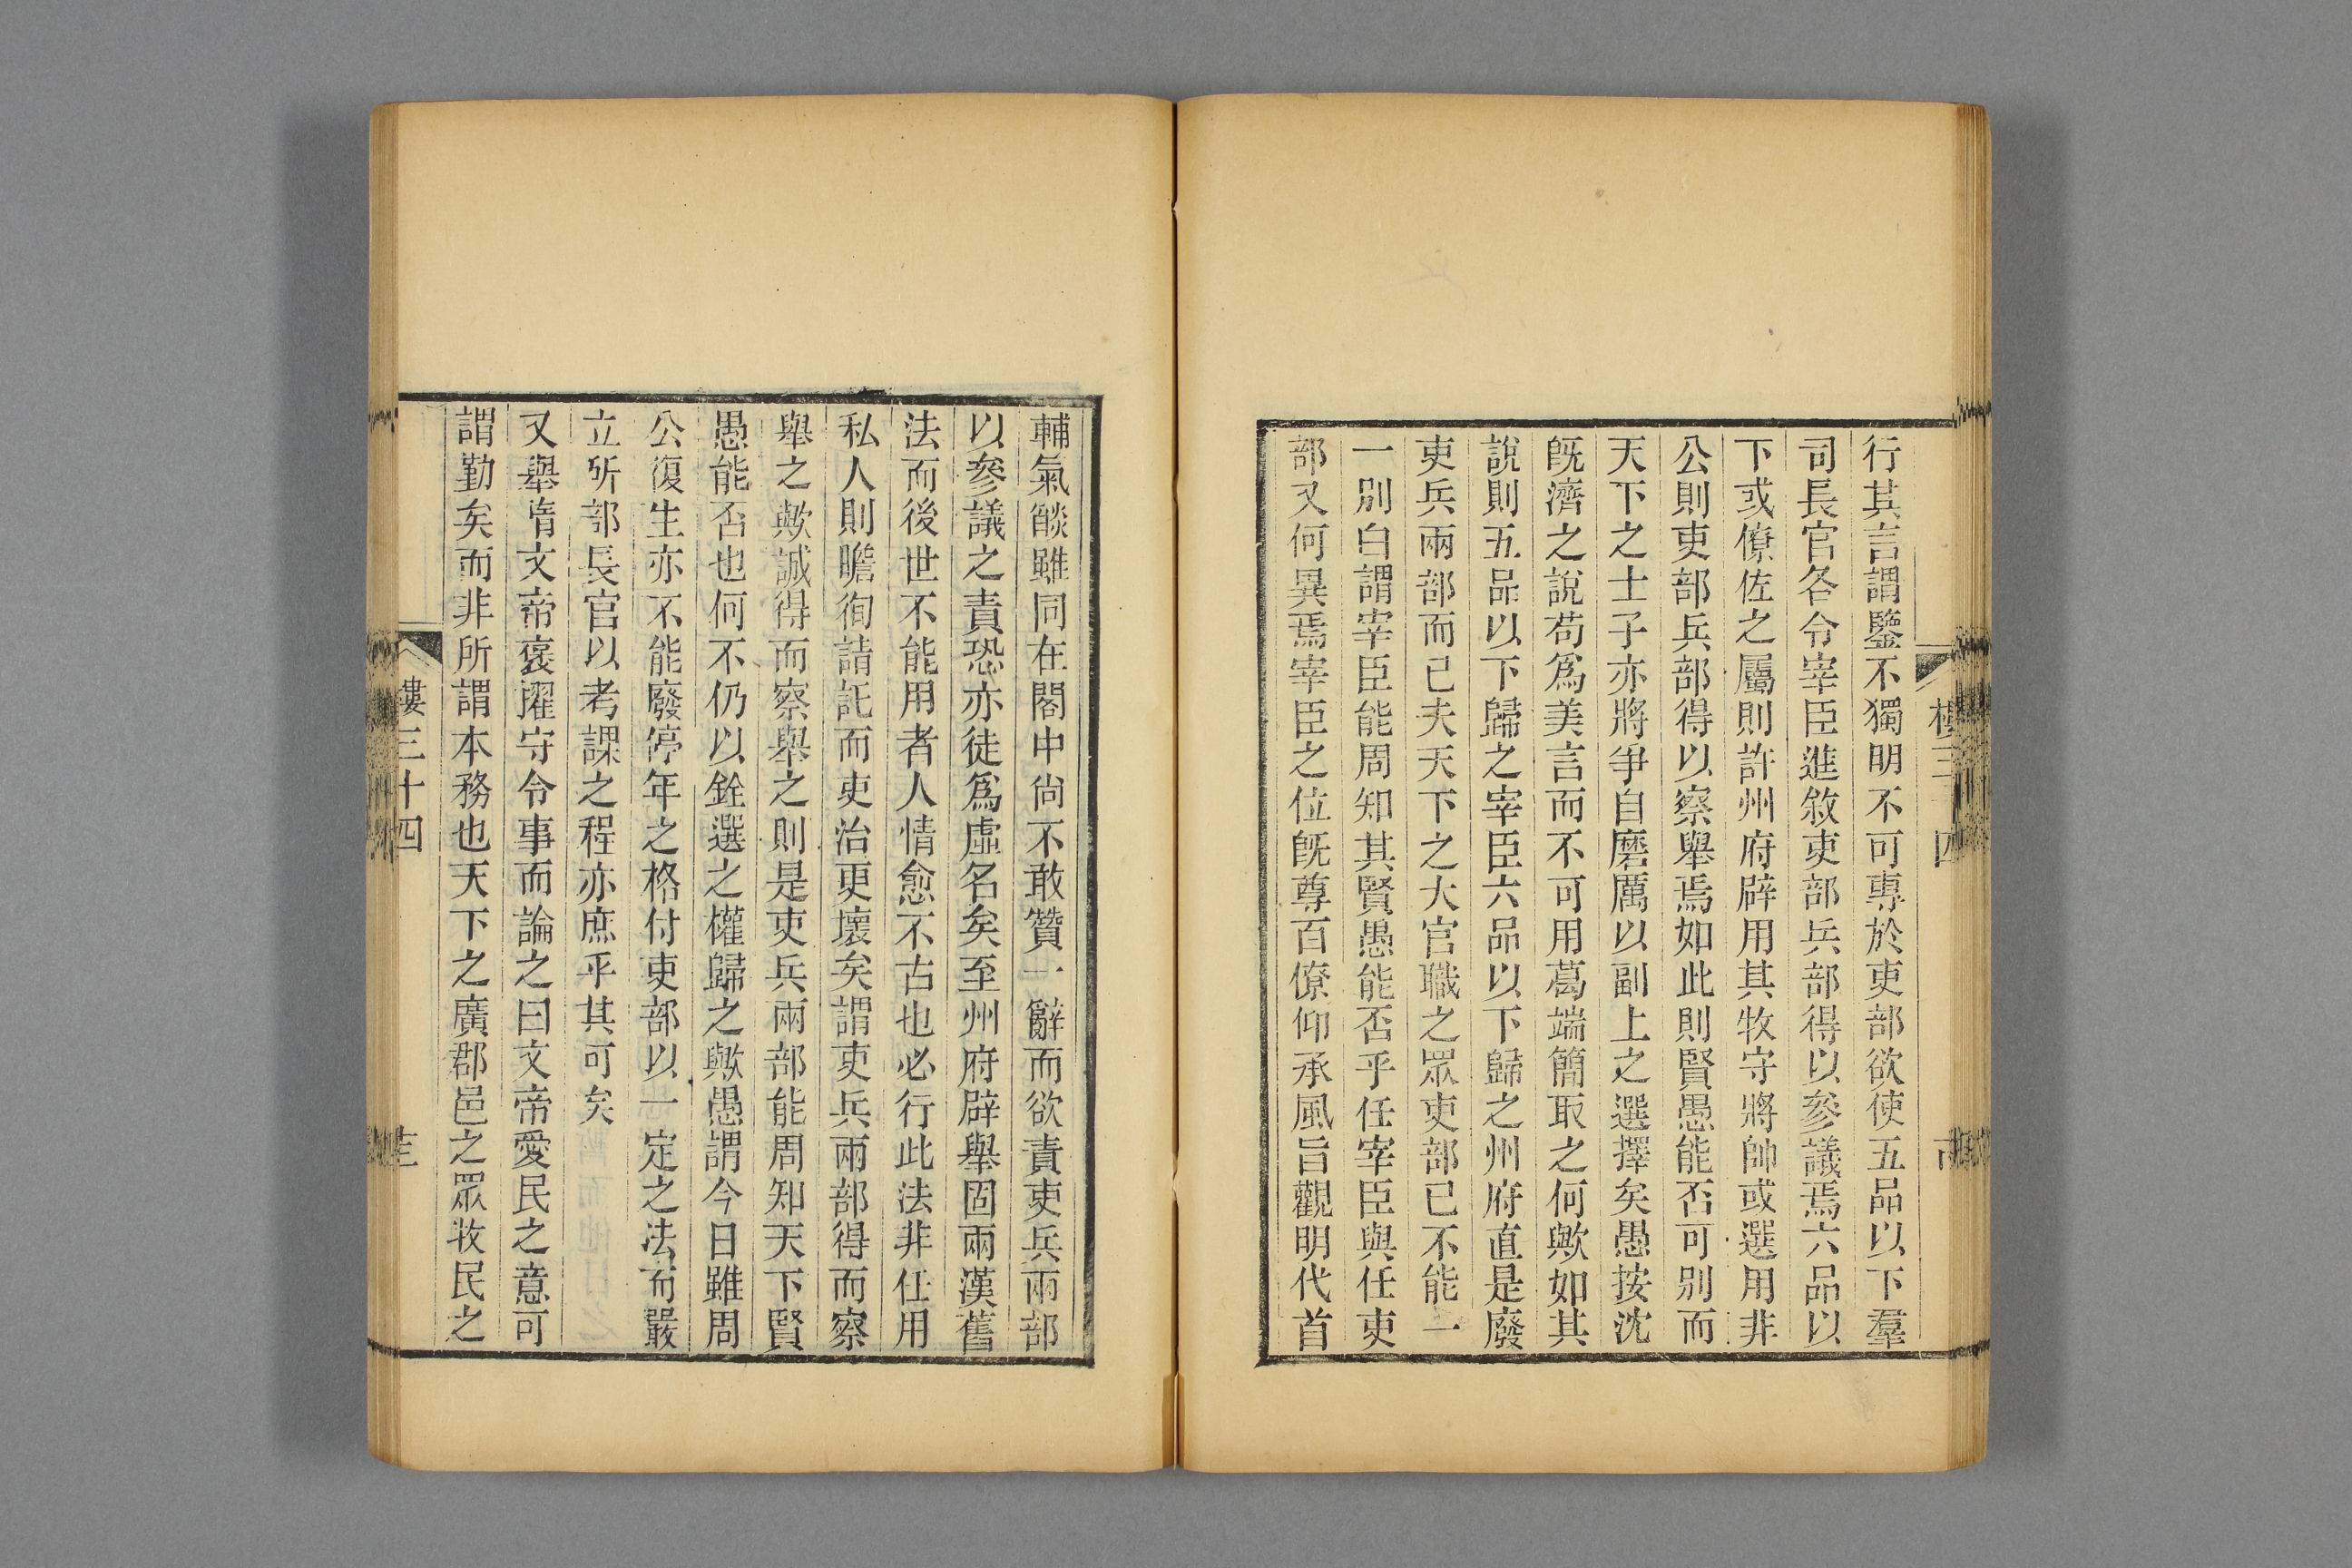 行其言謂鑒不獨明不可專於吏部欲使五品以下羣
司長官各令宰臣進敘吏部兵部得以參議焉六品以
下或僚佐之屬則許州府辟用其牧守將帥或選用非
公則吏部兵部得以察舉焉如此則賢愚能否可别而
天下之士子亦將爭自磨厲以副上之選擇矣愚按沈
旣濟之說苟爲美言而不可用葛端簡取之何歟如其
說則五品以下歸之宰臣六品以下歸之州府直是廢
吏兵兩部而已夫天下之大官職之眾吏部已不能一
一别白謂宰臣能周知其賢愚能否乎任宰臣與任吏
部又何異焉宰臣之位旣尊百僚仰承風旨觀明代首
輔氣燄雖同在閣中尚不敢贊一辭而欲責吏兵兩部
以參議之責恐亦徒爲虛名矣至州府辟舉固兩漢舊
法而後世不能用者人情愈不古也必行此法非任用
私人則瞻徇請託而吏治更壞矣謂吏兵兩部得而察
舉之歟誠得而察舉之則是吏兵兩部能周知天下賢
愚能否也何不仍以銓選之權歸之歟愚謂今日雖周
公復生亦不能廢停年之格付吏部以一定之法而嚴
立所部長官以考課之程亦庶乎其可矣
又舉隋文帝褒擢守令事而論之曰文帝愛民之意可
謂勤矣而非所謂本務也天下之廣郡邑之眾牧民之
樓三十四